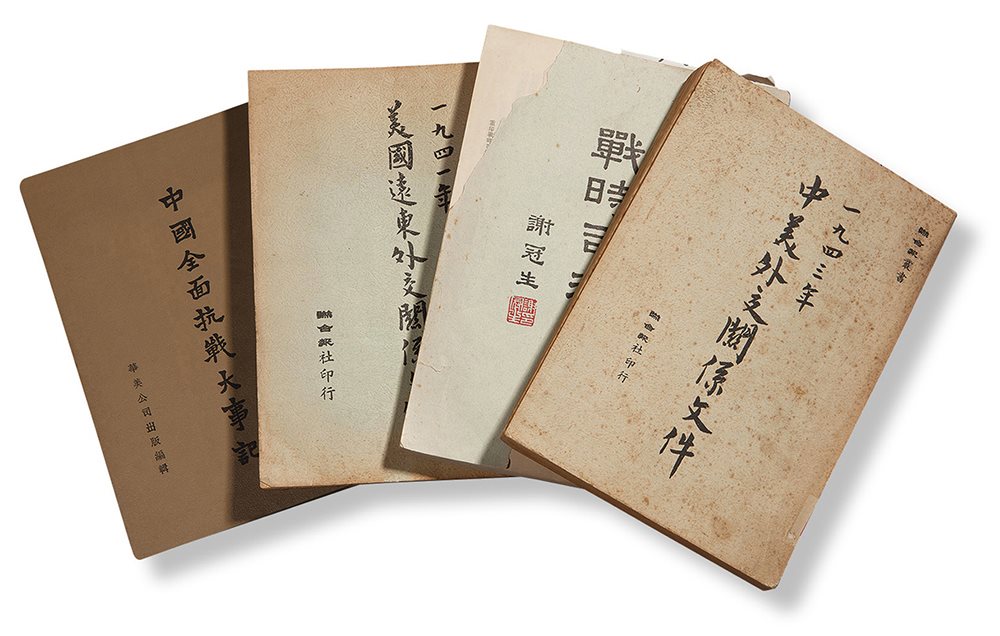 中國全面抗戰大事記
華美公司出版編輯
一九四一年
美國遠東外交關係
聯合報社印行
戰時司
謝冠生
聯合報叢書
一九四三年
中美外交關係文件
聯合報社印行